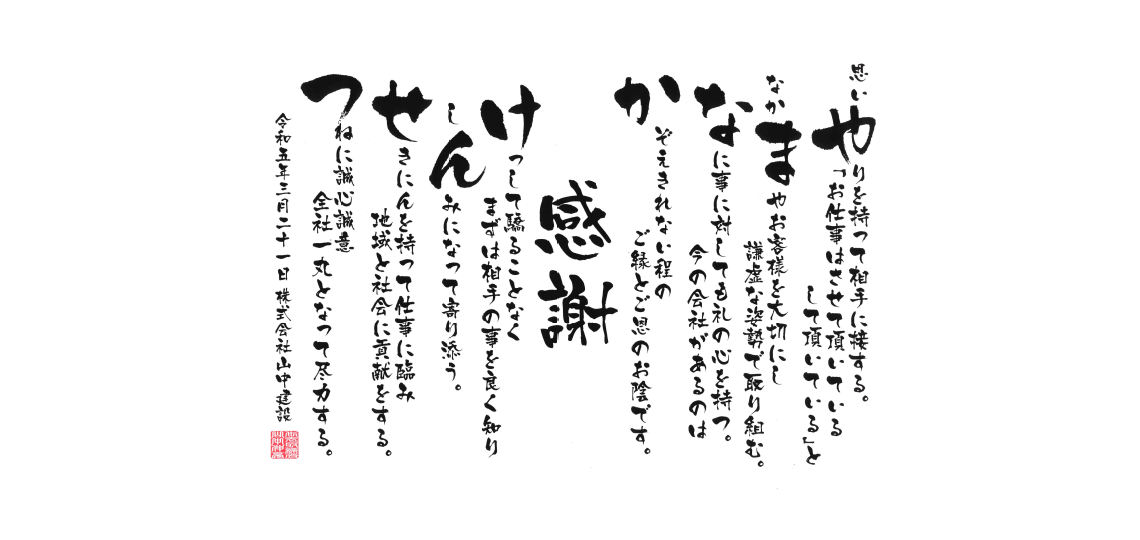 思いやりを持って相手に接する。
「お仕事はさせて頂いている
して頂いている」と
なかまやお客様を大切にし
謙虚な姿勢で取り組む。
なに事に対しても礼の心を持つ。
今の会社があるのは
かぞえきれない程の
ご縁とご恩のお陰です。
感謝
けっして驕ることなく
まずは相手の事を良く知り
しんみになって寄り添う。
せきにんを持って仕事に臨み
地域と社会に貢献をする。
つねに誠心誠意
全社一丸となって尽力する。
令和五年三月二十一日 株式会社山中建設